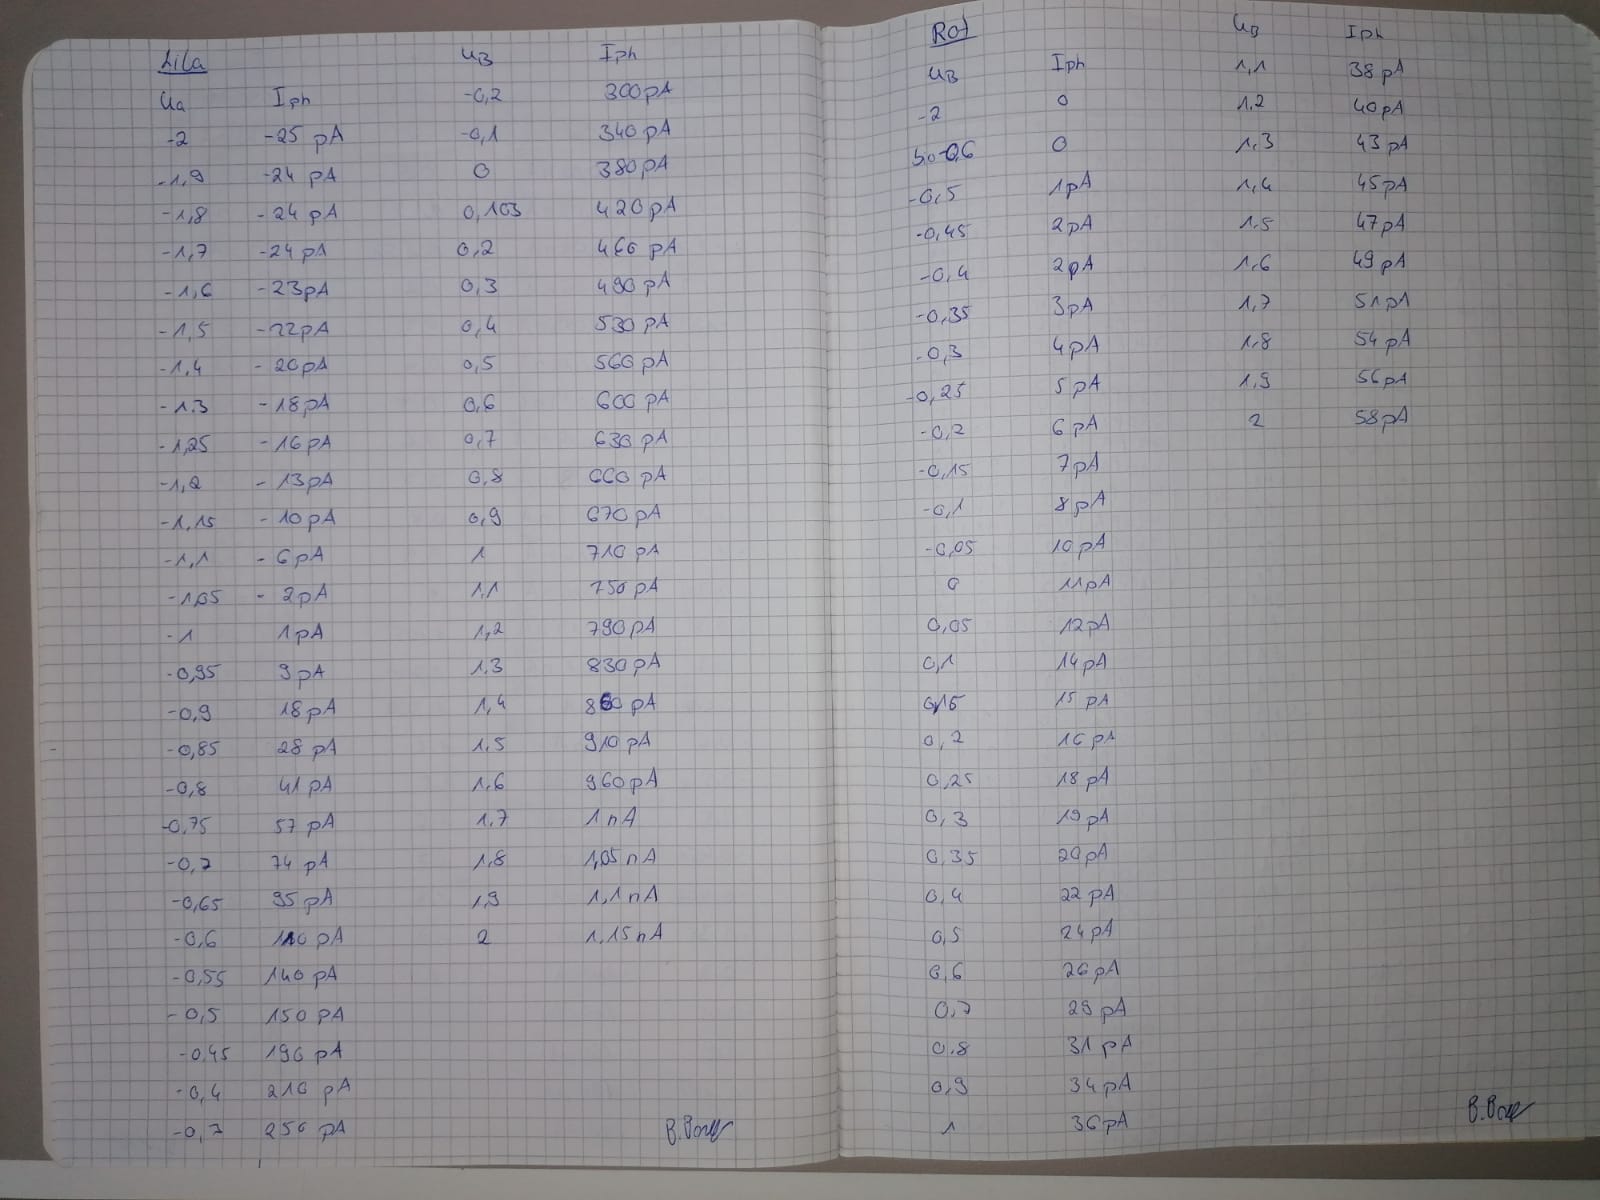 Lila
Ua Iph
-2 -25 pA
-1,9 -24 pA
-1,8 -24 pA
-1,7 -24 pA
-1,6 -23pA
-1,5 -22pA
-1,4 -20pA
-1.3 -18pA
-1,25 -16pA
-1,2 -13pA
-1,15 -10pA
-1,1 -6pA
-1,05 -2pA
-1 1pA
-0,95 9pA
-0,9 18pA
-0,85 28 pA
-0,8 41 pA
-0,75 57 pA
-0,7 74 pA
-0,65 95 pA
-0,6 110 pA
-0,55 140 pA
-0,5 150 pA
-0,45 190 pA
-0,4 210 pA
250 pA
UB Iph
-0,2 300pA
-0,1 340 pA
0 380pA
0,103 420pA
0,2 460 pA
0,3 490 pA
0,4 530 pA
0,5 560pA
0,6 600 pA
0,7 630 pA
0,8 660 pA
0,9 670 pA
1 710 pA
1,1 750 pA
1,2 790pA
1,3 830pA
1,4 860 pA
1,5 910 pA
1,6 960pA
1,7 1 nA
1,8 1,05 nA
1,9 1,1 nA
2 1,15nA
Rot
UB Iph
-2 0
bis -0,6 0
-0,5 1pA
-0,45 2pA
-0,4 2pA
-0,35 3pA
-0,3 4pA
-0,25 5 pA
-0,2 6 pA
-0,15 7pA
-0,1 8 pA
-0,05 10 pA
0 11pA
0,05 12pA
0,1 14pA
0,15 15 pA
0,2 16pA
0,25 18 pA
0,3 19pA
0,35 20pA
0,4 22 pA
0,5 24pA
0,6 26pA
0,7 29 pA
0,8 31 pA
0,9 34pA
1 36pA
UB Iph
1,1 38 pA
1,2 40pA
1,3 43 pA
1,4 45pA
1,5 47pA
1,6 49 pA
1,7 51pA
1,8 54 pA
1,9 56pA
2 58pA